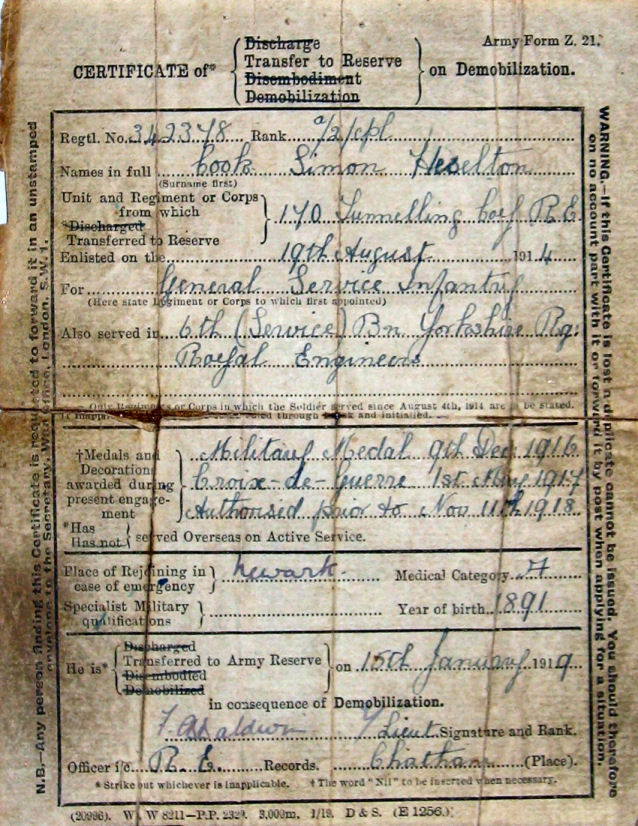 Army Form Z. 21.
CERTIFICATE of* Discharge Transfer to Reserve Disembodiment Demobilization on Demobilization.
Regtl. No. 342378 Rank a/2/cpl
Names in full Cook Simon Heselton
(Surname first)
Unit and Regiment or Corps from which *Discharged Transferred to Reserve 170 Tunnelling Coy R.E.
Enlisted on the 19th August 1914
For General Service Infantry
(Here state Regiment or Corps to which first appointed)
Also served in 6th (Service) Bn Yorkshire Rg:
Royal Engineers
Only Regiments or Corps in which the Soldier served since August 4th, 1914 are to be stated.
through and initialled.
†Medals and Decorations awarded during present engagement
Military Medal 9th Dec. 1916
Croix-de-Guerre 1st May 1917
Authorised prior to Nov 11th 1918
*Has
Has not served Overseas on Active Service.
Place of Rejoining in case of emergency Newark Medical Category A
Specialist Military qualifications Year of birth 1891
He is* Discharged Transferred to Army Reserve Disembodied Demobilized on 15th January 1919
in consequence of Demobilization.
Lieut Signature and Rank.
Officer i/c R.E. Records. Chatham (Place).
* Strike out whichever is inapplicable. † The word "Nil" to be inserted when necessary.
(20996). W. W 8211—P.P. 3,000m. 1/19. D & S. (E 1256.)
N.B.—Any person finding this Certificate is requested to forward it in an unstamped
envelope to the Secretary, War Office, London, S.W. 1.
WARNING.—If this Certificate is lost a duplicate cannot be issued. You should therefore
on no account part with it or forward it by post when applying for a situation.